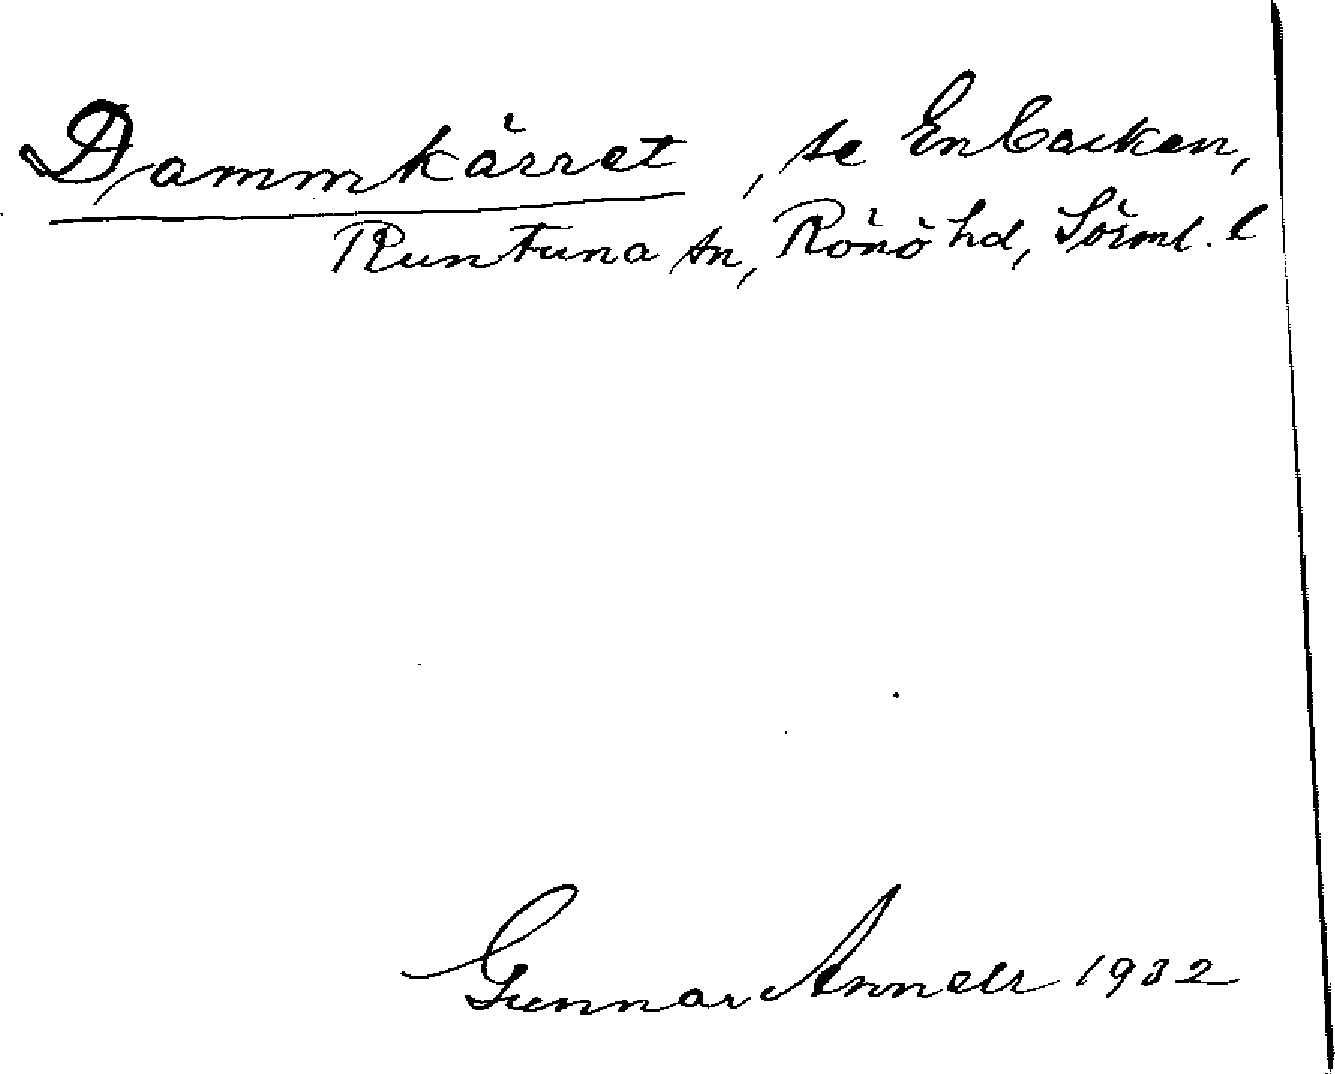 Dammkärret, se Enbacken,
Runtuna sn, Rönö hd, Sörml. l
Gunnar Annell 1932